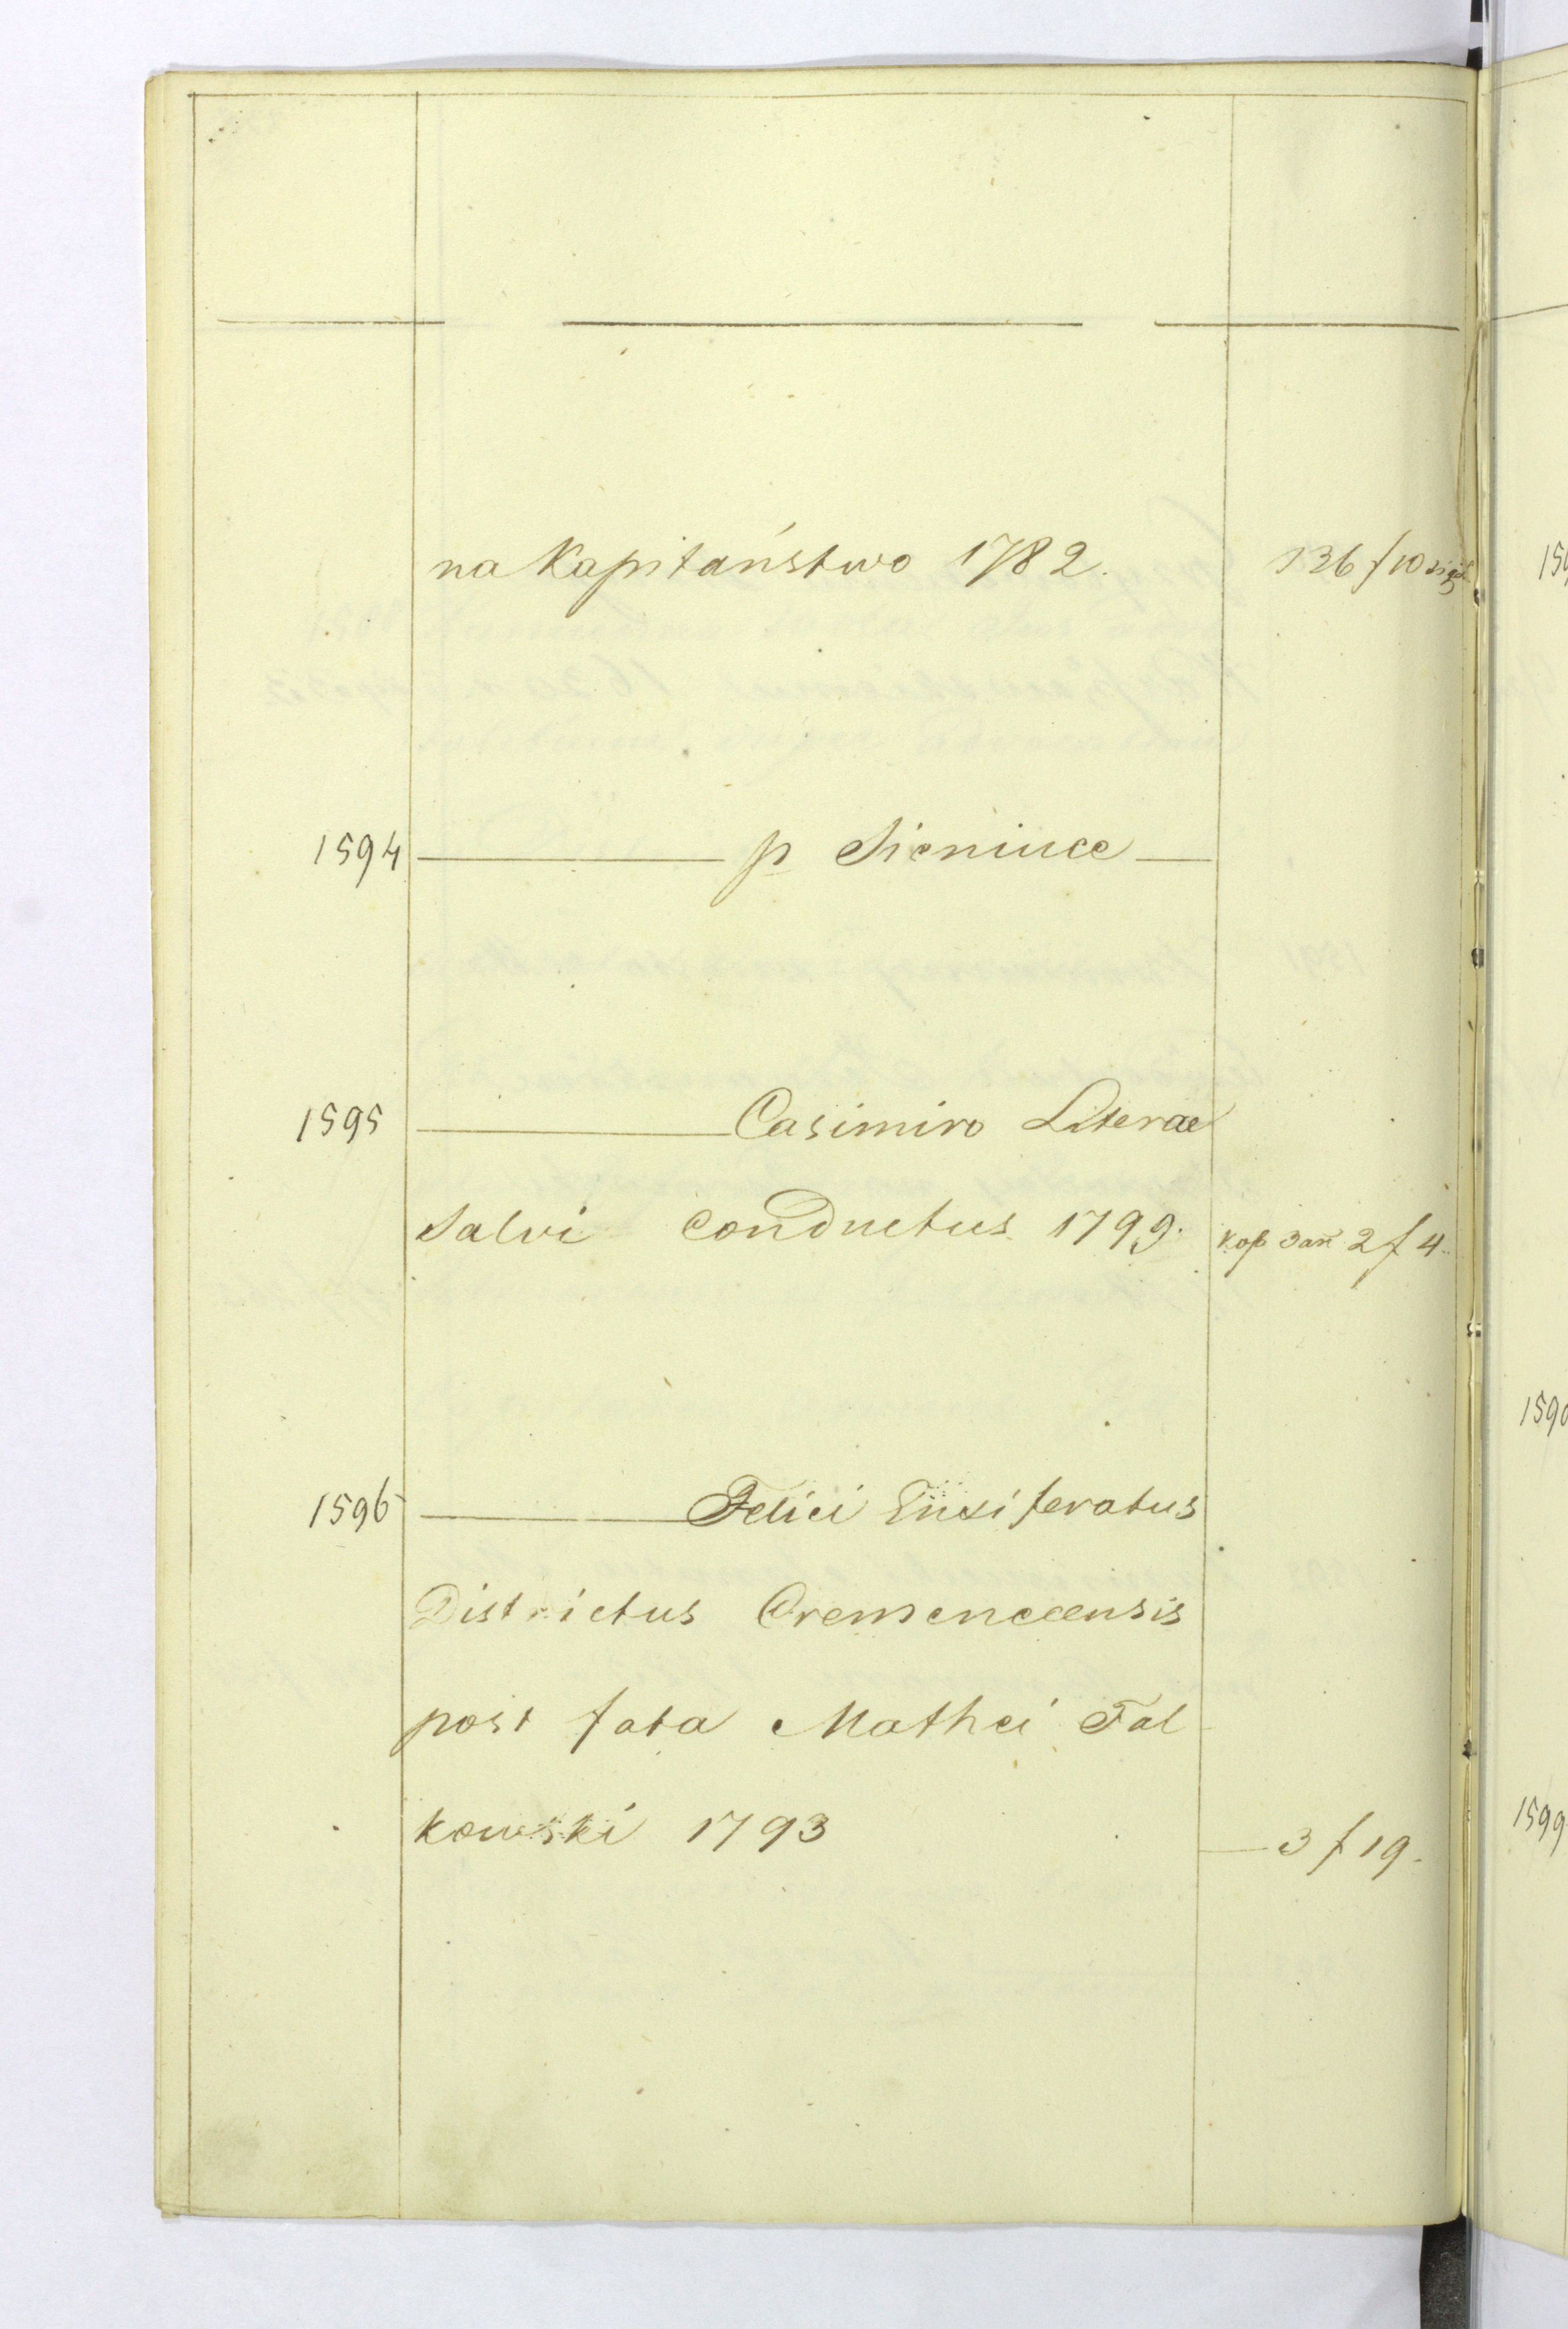 na Kapitaństwo 1782. 136 f 10
1594 p Sieniuce
1595 Casimiro Literae
Salvi conductus 1799. кор зап 2 f 4.
1596 Felici Ensiferatus
Districtus Cremeneceensis
post fata Mathei Fal
kowski 1793 3 f 19.
1599